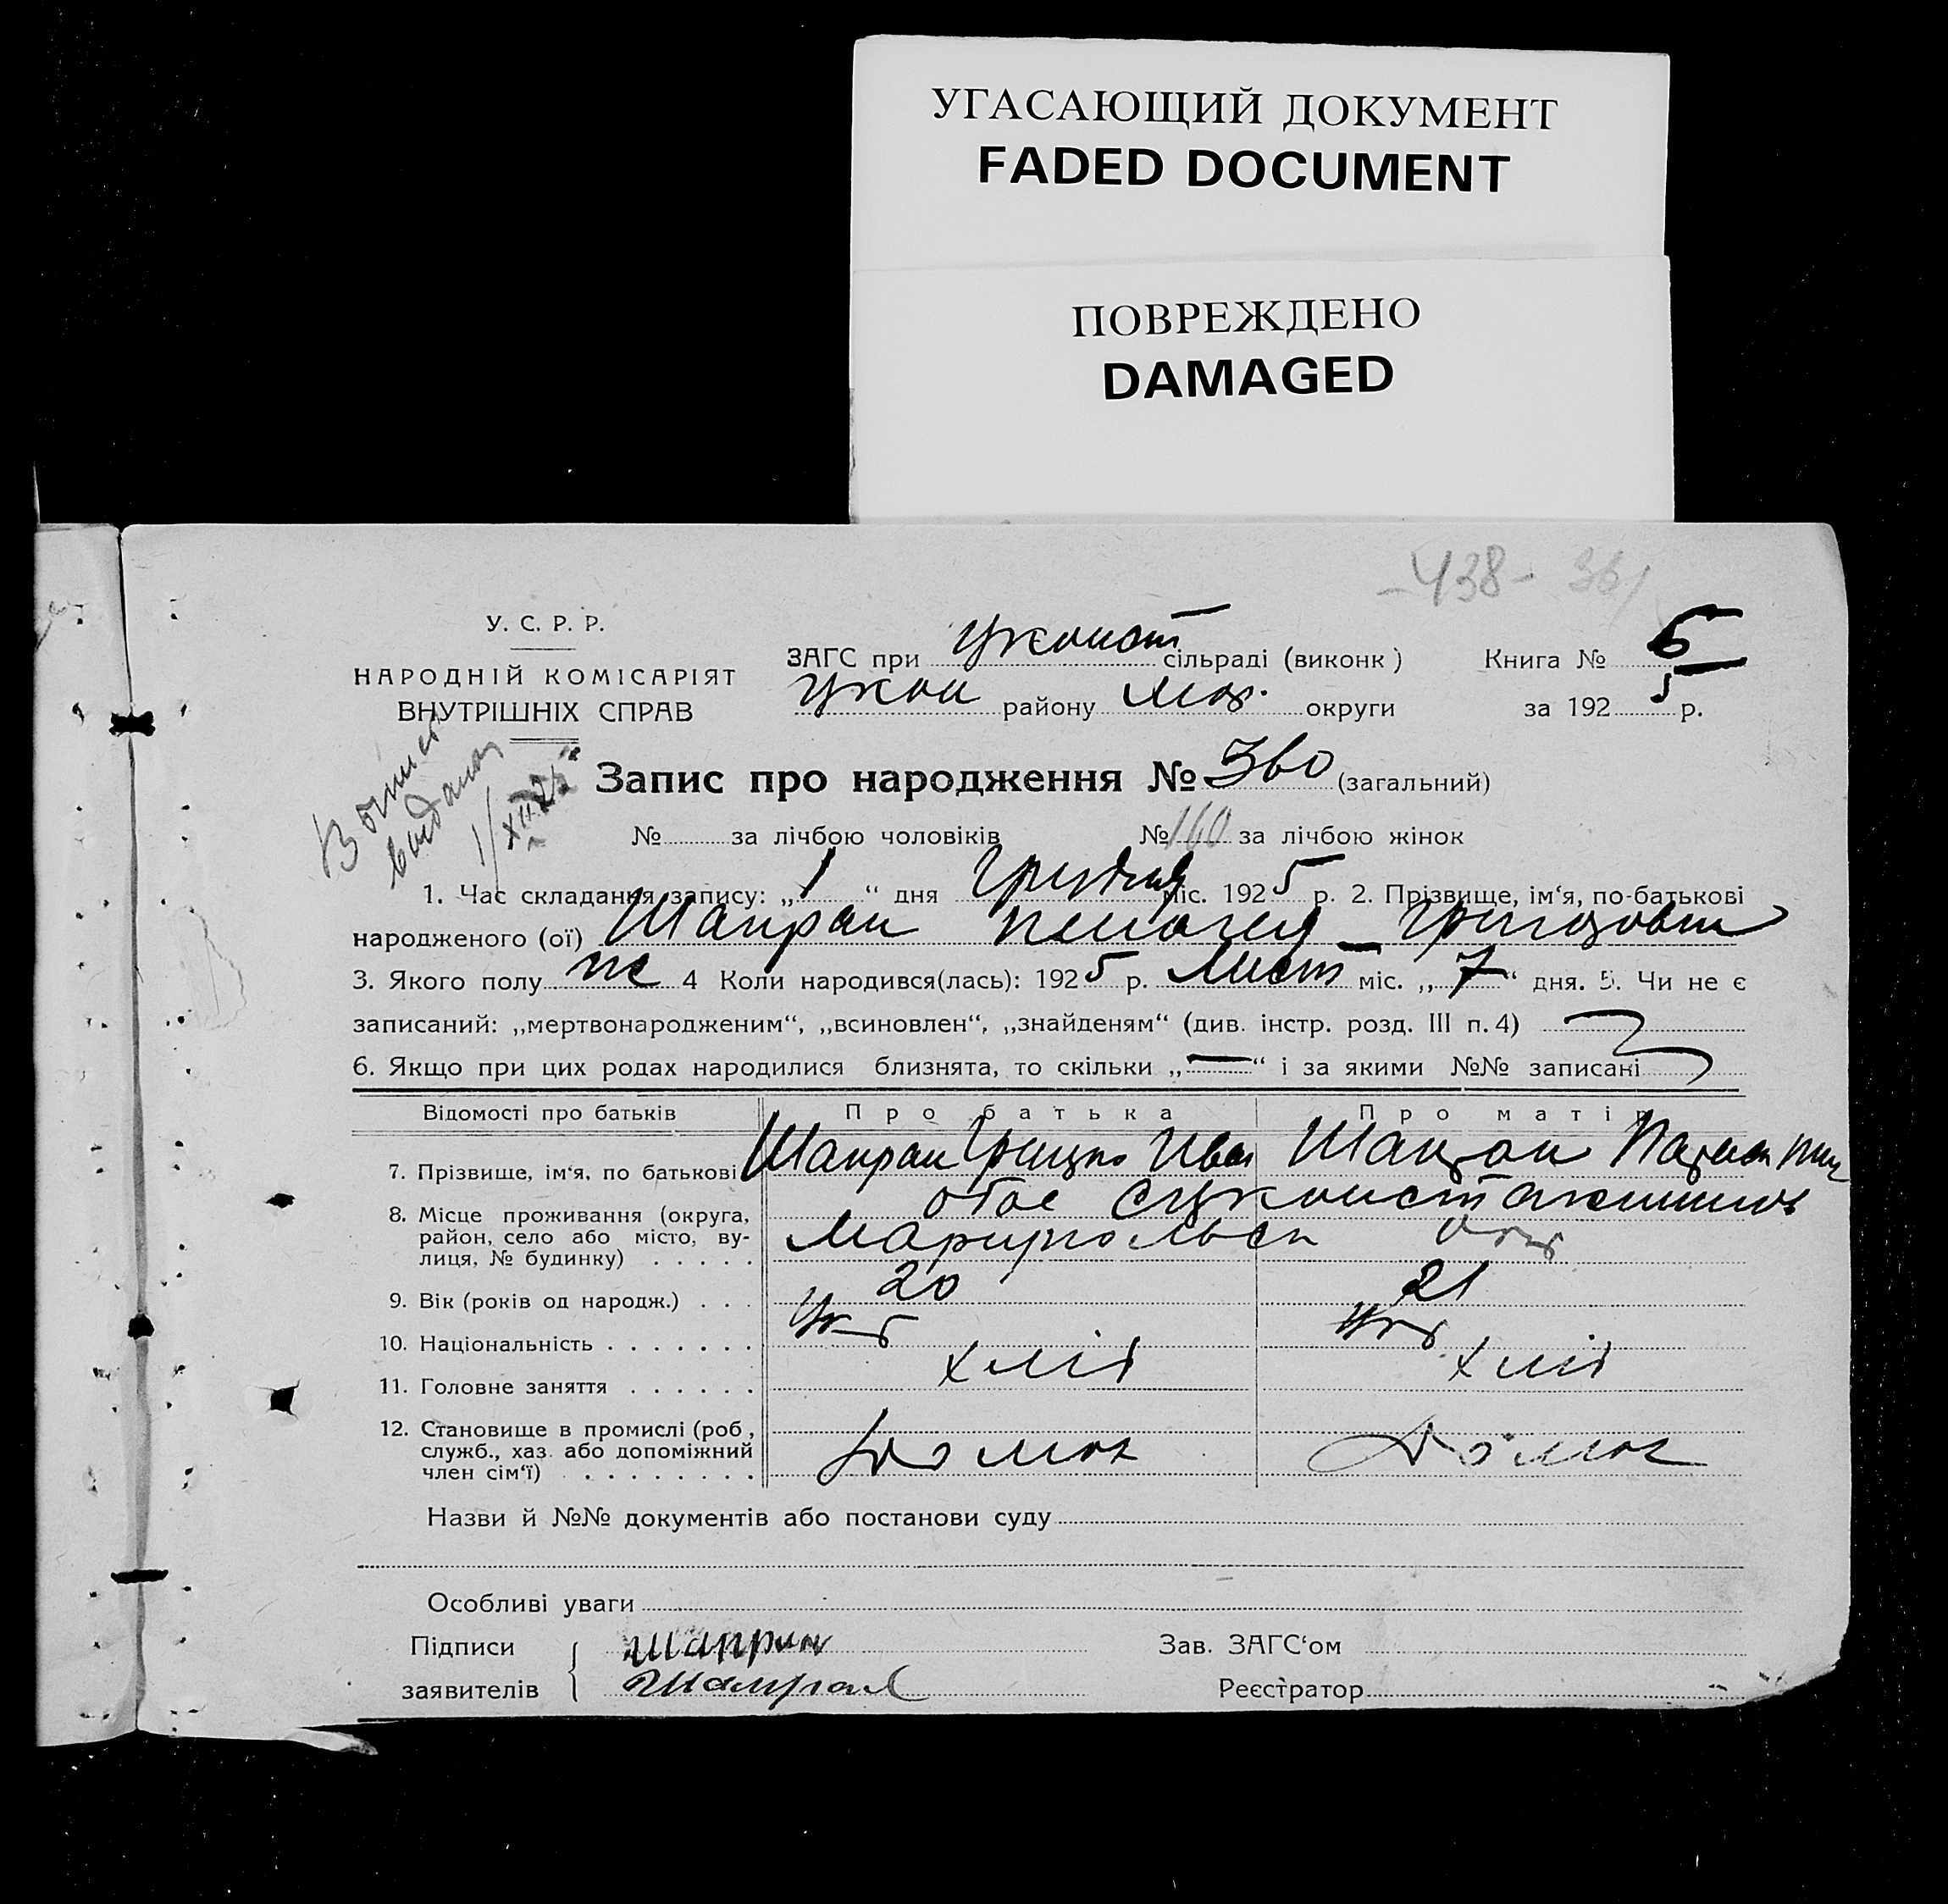 УГАСАЮЩИЙ ДОКУМЕНТ
FADED DOCUMENT
ПОВРЕЖДЕНО
DAMAGED
-438- 361
У. С. Р. Р.
НАРОДНІЙ КОМІСАРІЯТ
ВНУТРІШНІХ СПРАВ
ЗАГС при сільраді (виконк) Книга № 5
району Мар. округи за 1925 р.
видана
1/XII 25
Запис про народження № 360 (загальний)
№ за лічбою чоловіків № 160 за лічбою жінок
1. Час складання запису: „1“ дня Грудня міс. 1925 р. 2. Прізвище, ім‘я, по-батькові
народженого (ої) Шапран
3. Якого полу ж 4 Коли народився(лась): 1925 р. Лист міс. „7“ дня. 5. Чи не є
записаний: „мертвонародженим“, „всиновлен“, „знайденям“ (див. інстр. розд. III п. 4)
6. Якщо при цих родах народилися близнята, то скільки „—“ і за якими №№ записані
Відомості про батьків Про батька Про матір
7. Прізвище, ім‘я, по батькові Шапран Грицко Иван Шапран
8. Місце проживання (округа, район, село або місто, вулиця, № будинку) обое
Мариупольск окр
9. Вік (років од народж.) 20 21
10. Національність Укр Укр
11. Головне заняття хліб хліб
12. Становище в промислі (роб., служб., хаз. або допоміжний член сім‘ї)
Назви й №№ документів або постанови суду
Особливі уваги
Підписи Шапран Зав. ЗАГС‘ом
заявителів Шапран Реєстратор